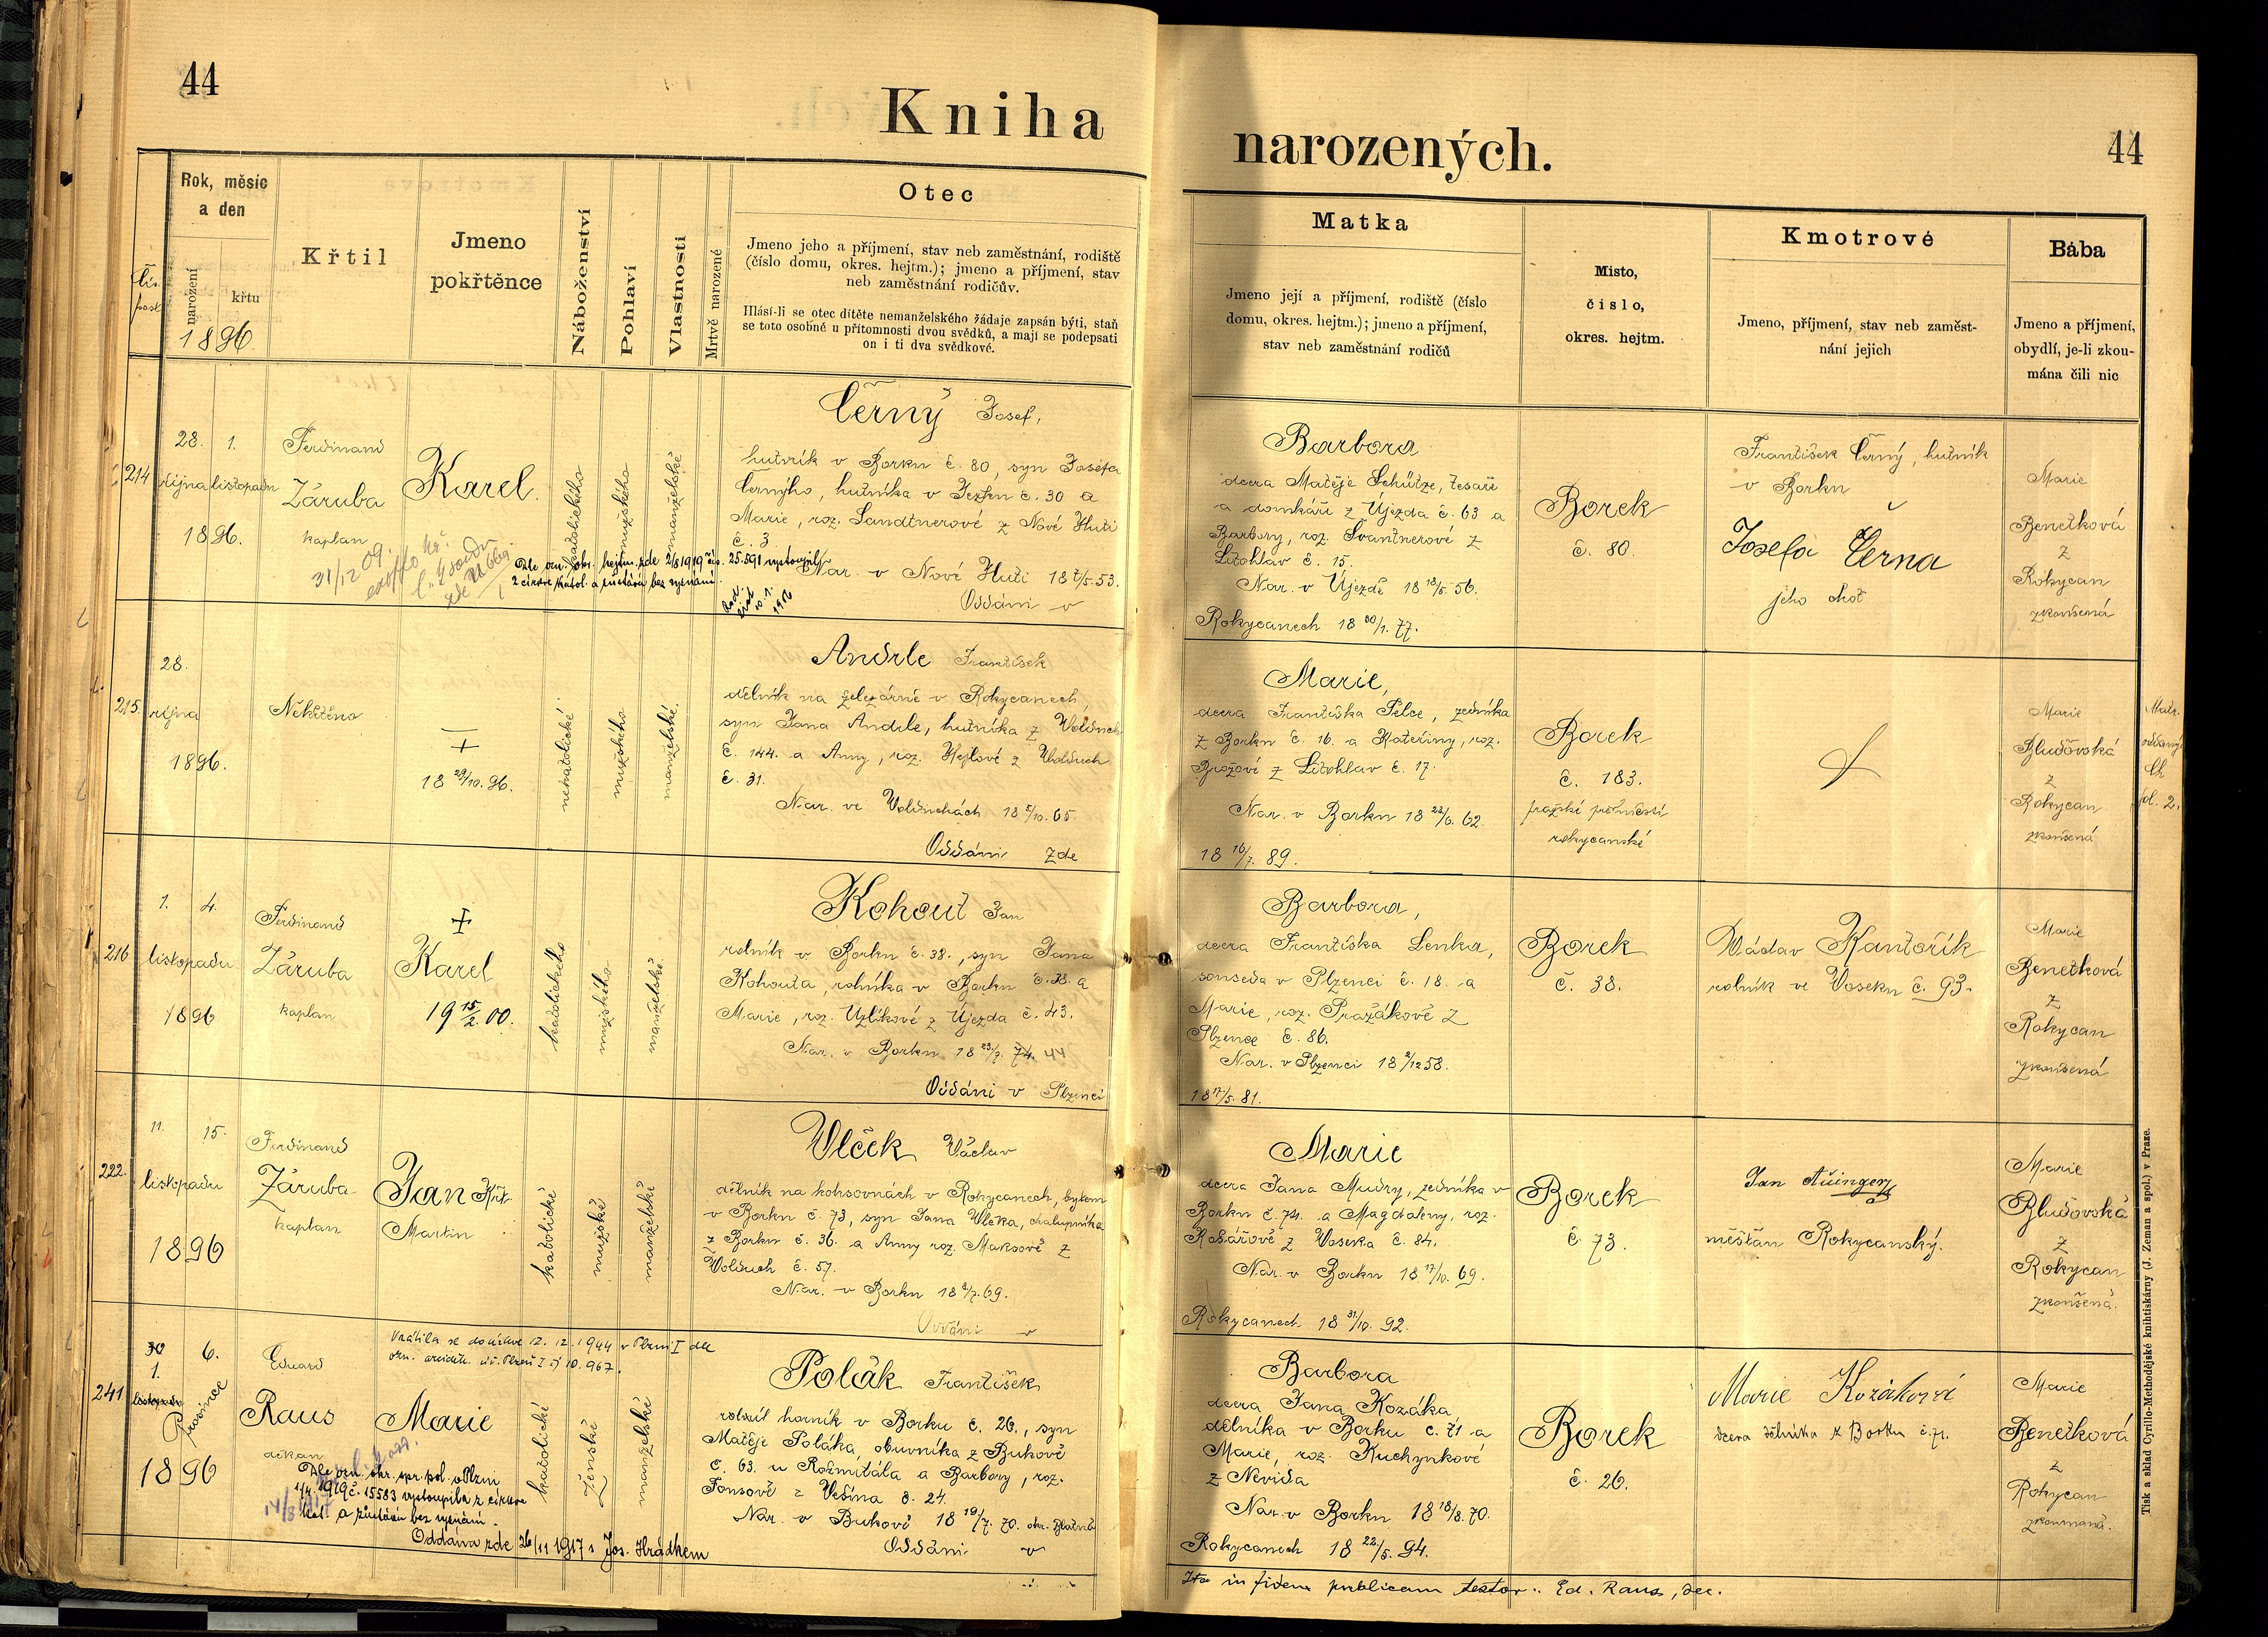 44
Kniha
narozených.
44
Rok, měsíc
a den
narození
křtu
1896.
Křtil
Jmeno
pokřtěnce
Náboženství
Pohlaví
Vlastnosti
Mrtvě narozené
Otec
Jmeno jeho a příjmení, stav neb zaměstnání, rodiště
(číslo domu, okres. hejtm.); jmeno a příjmení, stav
neb zaměstnání rodičův.
Hlásí-li se otec dítěte nemanželského žádaje zapsán býti, staň
se toto osobně u přítomnosti dvou svědků, a mají se podepsati
on i ti dva svědkové.
Matka
Jmeno její a příjmení, rodiště (číslo
domu, okres. hejtm.); jmeno a příjmení,
stav neb zaměstnání rodičů
Místo,
číslo,
okres. hejtm.
Kmotrové
Jmeno, příjmení, stav neb zaměst-
nání jejich
Bába
Jmeno a příjmení,
obydlí, je-li zkou-
mána čili nic
214
28. 1.
října listopadu
1896.
Ferdinand
Záruba
kaplan
Karel.
katolického
mužského
manželské
Černý Josef,
hutník v Borku č. 80, syn Josefa
Černýho, hutníka v č. 30 a
Marie, roz. Sandtnerové z Nové Huti
č. 3
Nar. v Nové Huti 18 7/5. 53.
Oddáni v
31/12 09.
Dle ozn. okr. hejtm. zde 2/8 1919 čís. 25.591 vystoupil
z církve katol. a zůstává bez vyznání.
Barbora
dcera Matěje Schütze, tesaře
a domkáře z Újezda č. 63 a
Barbory, roz. Svantnerové z
Litohlav č. 15.
Nar. v Újezdě 18 18/5. 56.
Rokycanech 18 30/1. 77.
Borek
č. 80.
František Černý, hutník
v Borku
Josefa Černa
jeho choť
Marie
Benetková
z
Rokycan
zkoušená
215.
28.
října
1896.
Nekřtěno
+
18 29/10. 96.
nekatolické
mužského
manželské.
Andrle František
dělník na železárně v Rokycanech,
syn Jana Andrle, hutníka z Volduch
č. 144. a Anny, roz. z Volduch
č. 31.
Nar. ve Volduchách 18 5/10. 65
Oddáni zde
Marie,
dcera Františka Pelce, zedníka
z Borku č. 16. a Kateřiny, roz.
Brožové z Litohlav č. 17.
Nar. v Borku 18 22/6. 62.
18 16/7. 89.
Borek
č. 183.
pražské předměstí
rokycanské
Marie
Bludovská
z
Rokycan
zkoušená
Matr.
oddaných
fol. 2.
216
1. 4.
listopadu
1896
Ferdinand
Záruba
kaplan
+
Karel
19 15/2. 00.
katolického
mužského
manželské.
Kohout Jan
rolník v Borku č. 38., syn Jana
Kohouta, rolníka v Borku č. 38. a
Marie, roz. Uzlíkové z Újezda č. 43.
Nar. v Borku 18 23/7. 74. 44
Oddáni v Plzenci
Barbora,
dcera Františka Lenka,
souseda v Plzenci č. 18. a
Marie, roz. Pražákově z
Plzence č. 86.
Nar. v Plzenci 18 2/12 58.
18 17/5. 81.
Borek
č. 38.
Václav Kantořík
rolník ve Voseku č. 93.
Marie
Benetková
z
Rokycan
zkoušená
222.
11. 15.
listopadu
1896
Ferdinand
Záruba
kaplan
Jan Křt.
Martin
katolické
mužské
manželské
Vlček Václav
dělník na koksovnách v Rokycanech, bytem
v Borku č. 73, syn Jana Vlčka, chalupníka
z Borku č. 36. a Anny roz. Maksově z
Volduch č. 57.
Nar. v Borku 18 8/7. 69.
Oddáni v
Marie
dcera Jana Mudry, zedníka v
Borku č. 74. a Magdaleny, roz.
Kolářově z Voseka č. 84.
Nar. v Borku 18 17/10. 69.
Rokycanech 18 31/10. 92.
Borek
č. 73.
Jan Aŭinger
měšťan Rokycanský.
Marie
Bludovská
z
Rokycan
zkoušená.
241
30 6.
1.
listopadu
Prosince
1896
Eduard
Raus
děkan
Vrátila se do církve 12. 12. 1944 v Plzni I dle
10.967.
Marie
Dle ozn. okr. spr. pol. v Plzni
1/4 1919 č. 15583 vystoupila z církve
kat. a zůstává bez vyznání.
Oddána zde 26/11 1917 s Jos. Hrádkem
katolické
ženské
manželské
Polák František
horník v Borku č. 26., syn
Matěje Poláka, obuvníka z Bukové
č. 63. u Rožmitála a Barbory, roz.
Fonsově z Vešína č. 24.
Nar. v Bukově 18 19/7. 70. okr. Blatná
Oddáni v
Barbora
dcera Jana Kozáka
dělníka v Borku č. 71 a
Marie, roz. Kuchynkové
z Nevida
Nar. v Borku 18 18/8. 70.
Rokycanech 18 22/5. 94.
Borek
č. 26.
Marie Kozáková
dcera dělníka z Borku č. 71.
Marie
Benetková
z
Rokycan
zkoumaná.
Ita in fidem publicam testor: Ed. Raus, dec.
Tisk a sklad Cyrillo-Methodějské knihtiskárny (J. Zeman a spol.) v Praze.